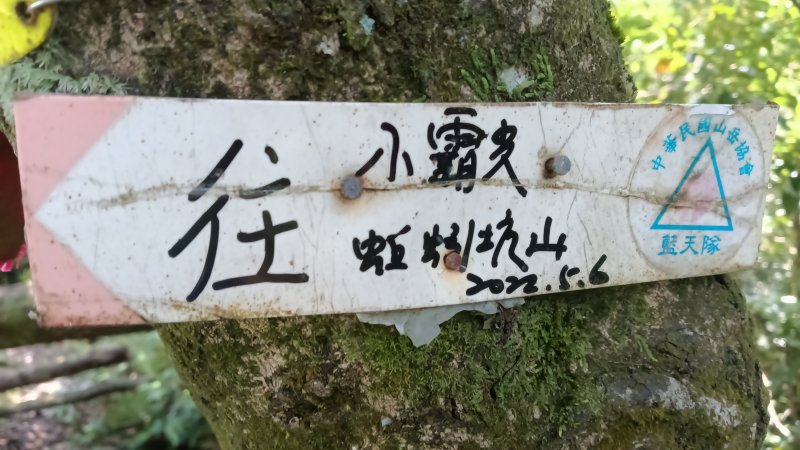 往
小霸尖
坑山
2022.5.6
中華民國山岳協會
藍天隊